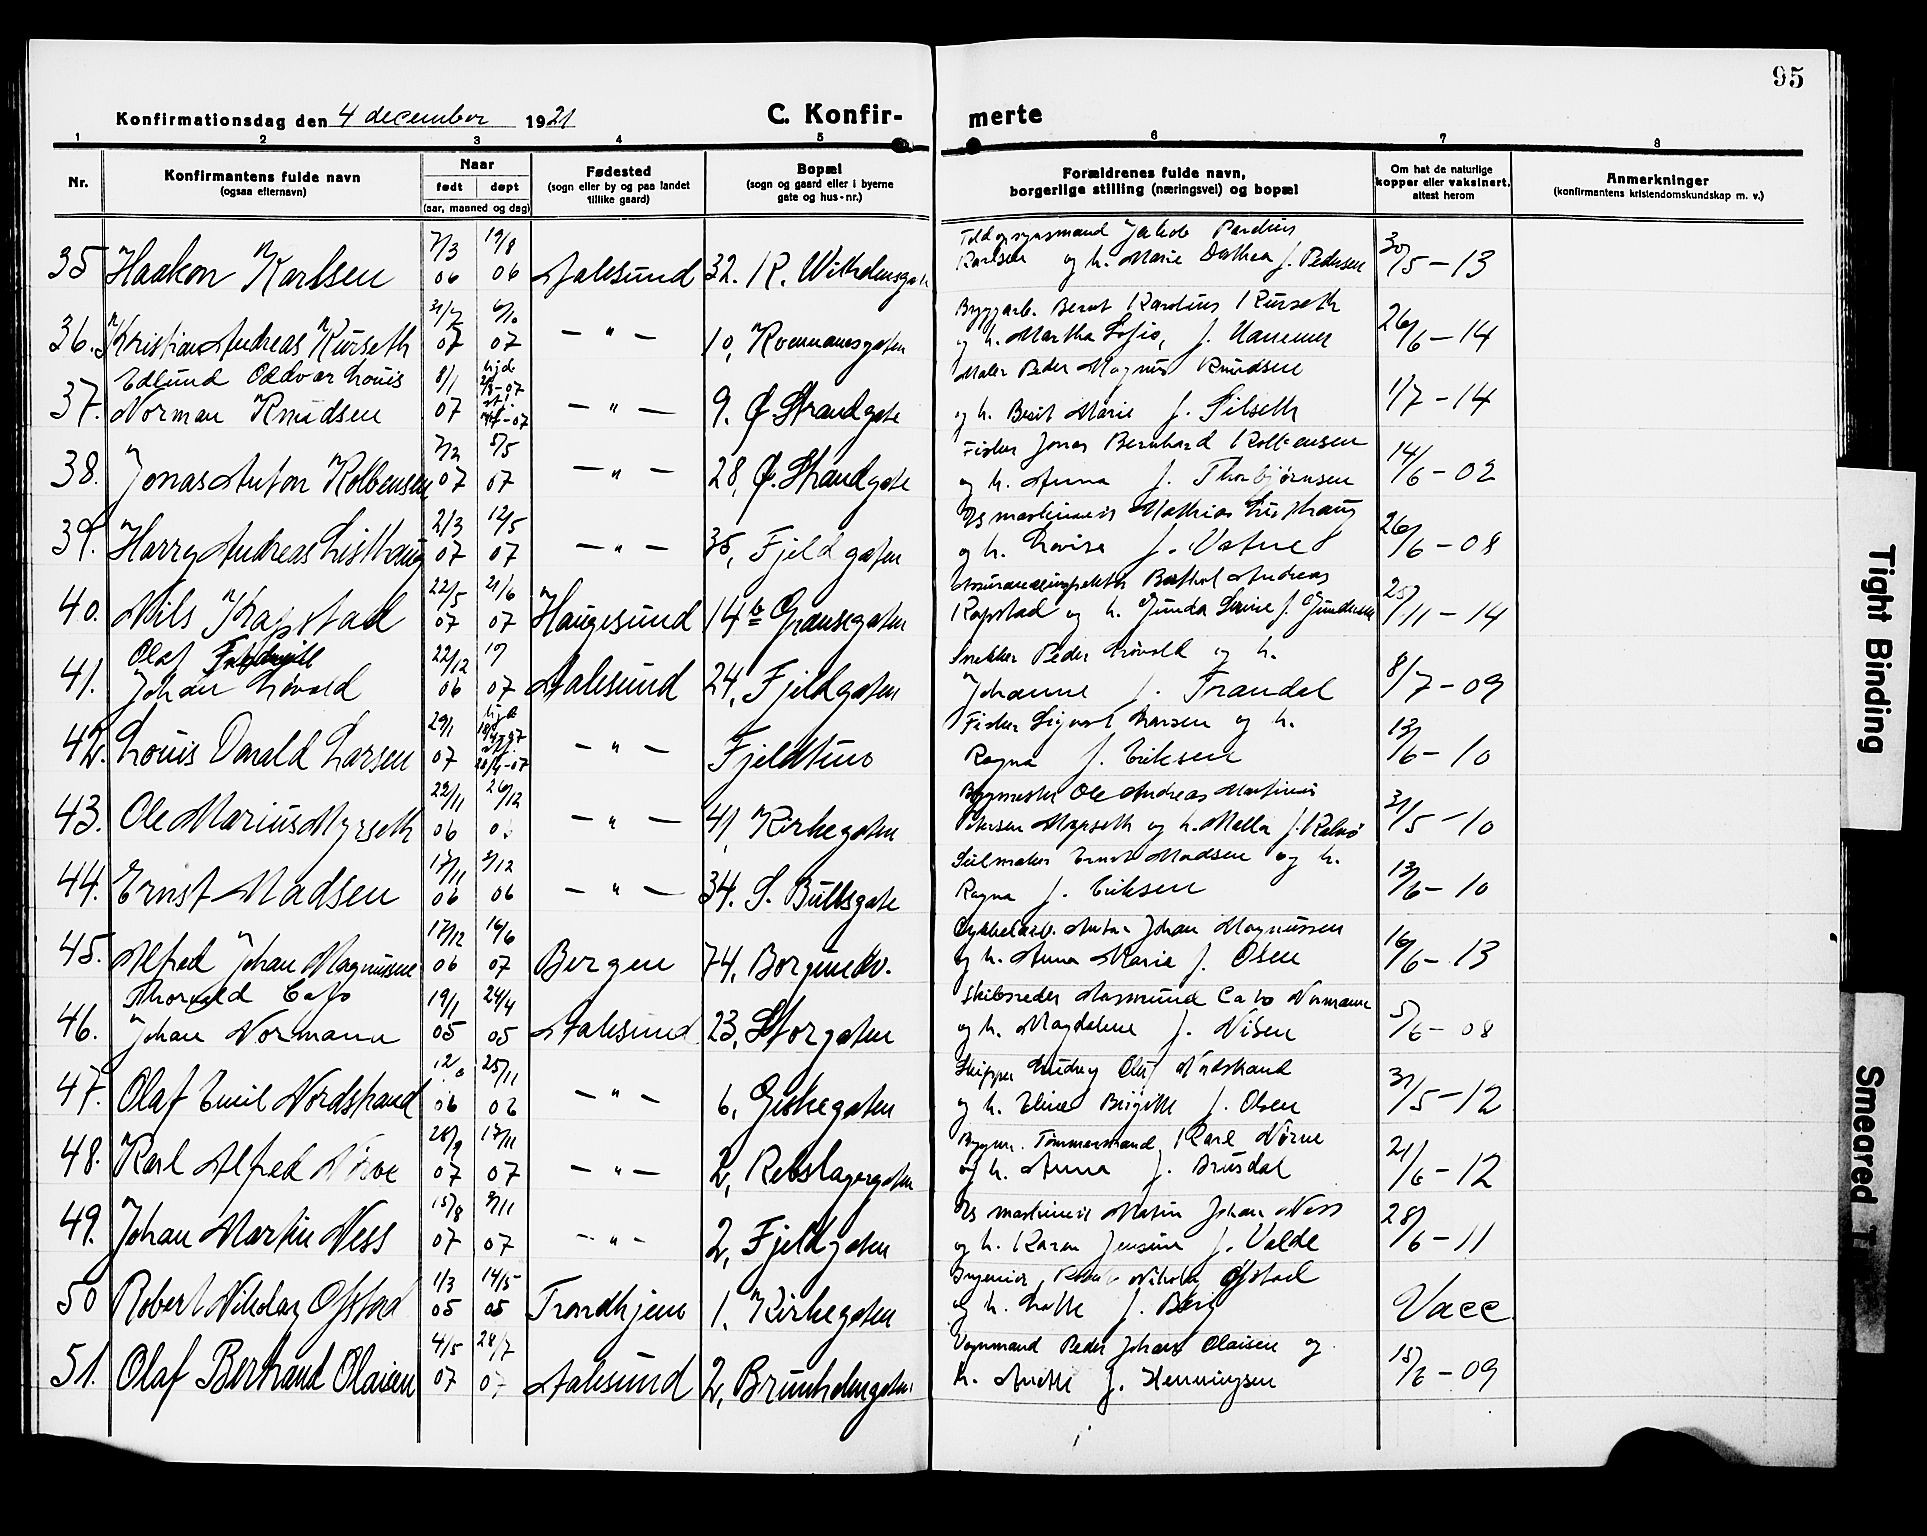 95
Konfirmationsdag den 4 december 1921
C. Konfir-
merte
1 2 3 4 5 6 7 8
Nr.
Konfirmantens fulde navn
(ogsaa efternavn)
Naar
født døpt
(aar, maaned og dag)
Fødested
(sogn eller by og paa landet
tillike gaard)
Bopæl
(sogn og gaard eller i byerne
gate og hus-nr.)
Forældrenes fulde navn,
borgerlige stilling (næringsvei) og bopæl
Om hat de naturlige
kopper eller vaksinert,
attest herom
Anmerkninger
(konfirmantens kristendomskundskap m. v.)
7/3 19/8 Jakob Pardius
35 Haakon Karlsen 06 06 Aalesund 32. K. Wilhelmsgate Karlsen og h. Marie Dathea f. Pedersen 30/5 – 13
Byggarb. Bernt Karolius Kurseth
36. Kristian Andreas Kurseth 07 07 – " – 10, Roemannsgaten og h. Martha Sofie, f. 26/6 – 14
Edlund Oddvar Louis 8/1 hjd. Maler Peder Magnus Knudsen
37. Norman Knudsen 07 – " – 9. Ø Strandgate og h. Berit Marie f. Silseth 1/7 – 14
7/2 5/5 Fisker Jonas Bernhard Kolbensen
38. Jonas Anton Kolbensen 07 07 – " – 28, Ø. Strandgate og h. Anna f. Thorbjørnsen 14/6 – 02
2/3 12/5 Mathias Listhaug
39. Harry Andreas Listhaug 07 07 – " – 35, Fjeldgaten og h. Lovise f. Vatne 26/6 – 08
22/5 21/6 Barthol Andreas
40. Nils Rapstad 07 07 Haugesund 14b Grensegaten Rapstad og h. Gunda f. Gundersen 25/11 – 14
Olaf 22/12 19 Snekker Peder Løvold og h.
41. Johan Løvold 06 07 Aalesund 24, Fjeldgaten Johanne f. Frandal 8/7 – 09
29/1 hjd. Fisker Sigvart Larsen og h.
42. Louis Donald Larsen 07 – " – Fjeldtun Ragna f. Eriksen 13/6 – 10
22/11 26/12 Byggmester Ole Andreas Martinus
43. Ole Marius Myrseth 06 – " – 41, Kirkegaten Petersen Myrseth og h. f. Kalvø 31/5 – 10
17/11 Seilmaker Ernst Madsen og h.
44. Ernst Madsen 06 06 – " – 34. S. Bullsgate Ragna f. Eriksen 13/6 – 10
17/12 16/6 Anton Johan Magnussen
45. Alfred Johan Magnussen 06 07 Bergen 74, Borgundv. og h. Anna Marie f. Osen 16/6 – 13
Thorvald Cato 19/1 24/4 Skibsreder Cato Normann
46. Johan Normann 05 05 Aalesund 23, Storgaten og h. Magdalene f. 5/6 – 08
25/11 Skipper Ludvig Olaf Nordstrand
47. Olaf Emil Nordstrand 06 06 – " – 6, Giskegaten og h. Eline Birgitte f. Olsen 31/5 – 12
28/9 17/11 Tømmermand Karl Nørve
48. Karl Alfred Nørve 07 07 – " – 2, Rebslagergaten og h. Anna f. Brusdal 21/6 – 12
15/8 Martin Johan Ness
49. Johan Martin Ness 07 07 – " – 2, Fjeldgaten og h. Karen Jensine f. Valde 28/6 – 11
1/3 14/5 Ingeniør Nikolai Ofstad
50 Robert Nikolay Ofstad 05 05 Trondhjem 1. Kirkegaten og h. Lalle f. Berg Vacc
4/5 28/7 Vognmand Peder Johan Olaisen og
51. Olaf Bertrand Olaisen 07 07 Aalesund 2, Brunholmgaten h. Anette f. Henningsen 15/6 – 09
Tight Binding
Smeared T